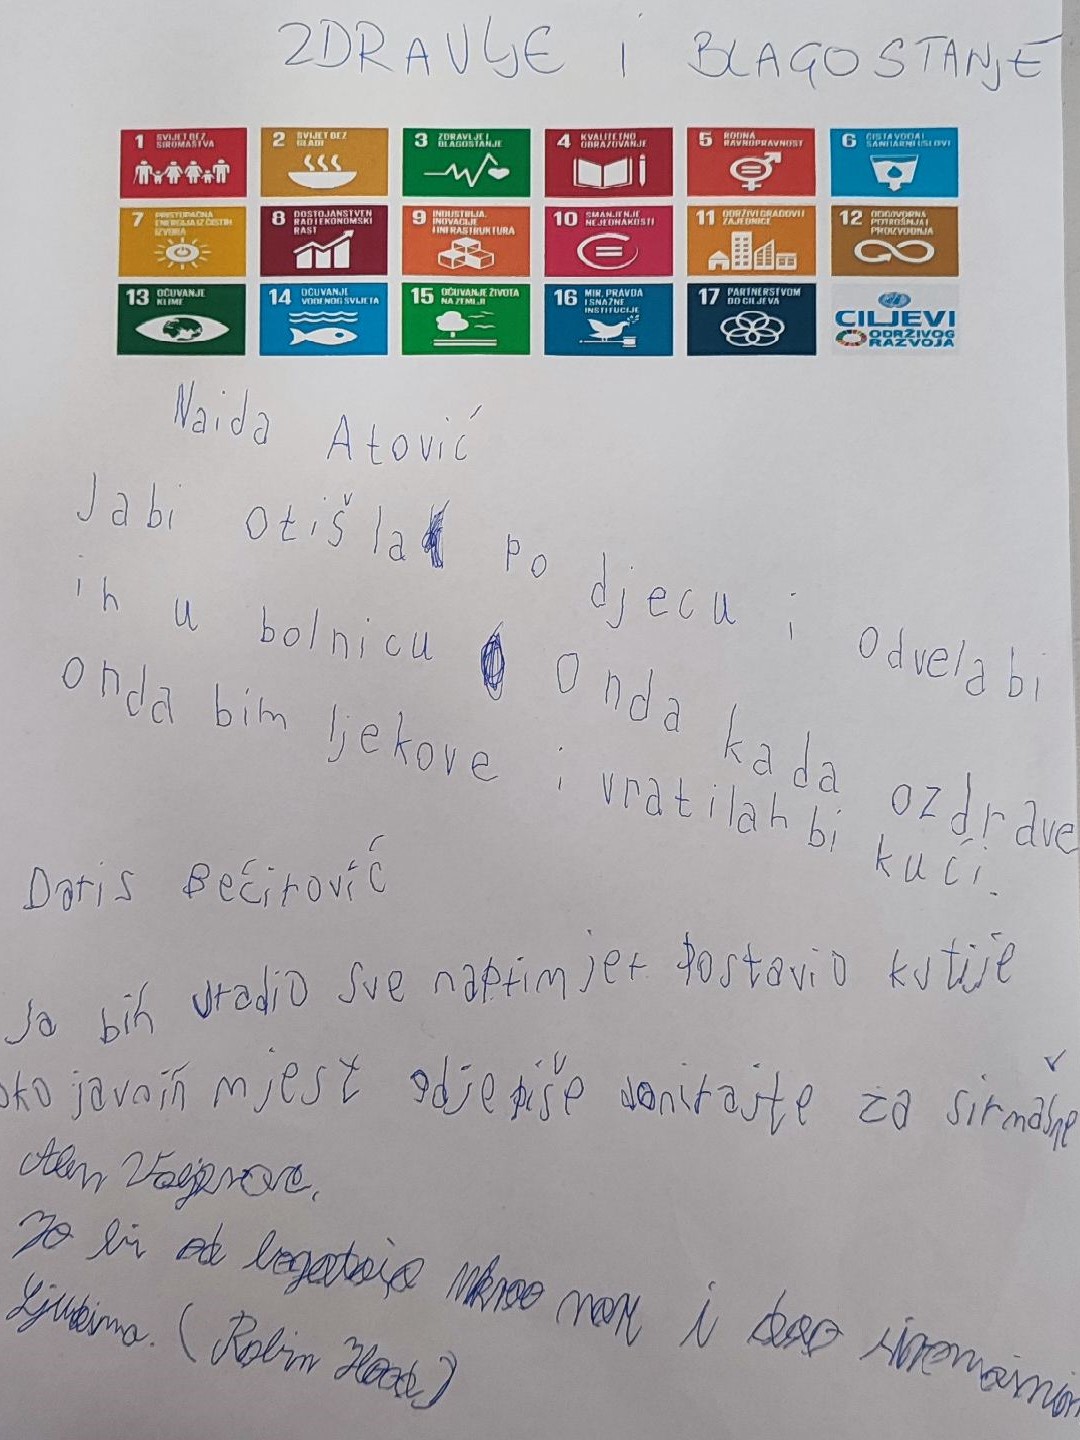 ZDRAVLJE I BLAGOSTANJE
1 SVIJET BEZ SIROMAŠTVA
2 SVIJET BEZ GLADI
3 ZDRAVLJE I BLAGOSTANJE
4 KVALITETNO OBRAZOVANJE
5 RODNA RAVNOPRAVNOST
6 ČISTA VODA I SANITARNI USLOVI
7 PRISTUPAČNA ENERGIJA IZ ČISTIH IZVORA
8 DOSTOJANSTVEN RAD I EKONOMSKI RAST
9 INDUSTRIJA, INOVACIJE I INFRASTRUKTURA
10 SMANJENJE NEJEDNAKOSTI
11 ODRŽIVI GRADOVI I ZAJEDNICE
12 ODGOVORNA POTROŠNJA I PROIZVODNJA
13 OČUVANJE KLIME
14 OČUVANJE VODENOG SVIJETA
15 OČUVANJE ŽIVOTA NA ZEMLJI
16 MIR, PRAVDA I SNAŽNE INSTITUCIJE
17 PARTNERSTVOM DO CILJEVA
CILJEVI ODRŽIVOG RAZVOJA
Naida Atović
Jabi otišla po djecu i odvelabi
ih u bolnicu Onda kada ozdrave
onda bim ljekove i vratilah bi kući.
Daris Bećirović
Ja bih uradio sve naprimjer postavio kutije
oko javnih mjest gdje piše donirajte za sirmašne
Alen
Ja bi od bogataša ukrao novc i dao siromašnim
Ljudima. (Robin Hood)